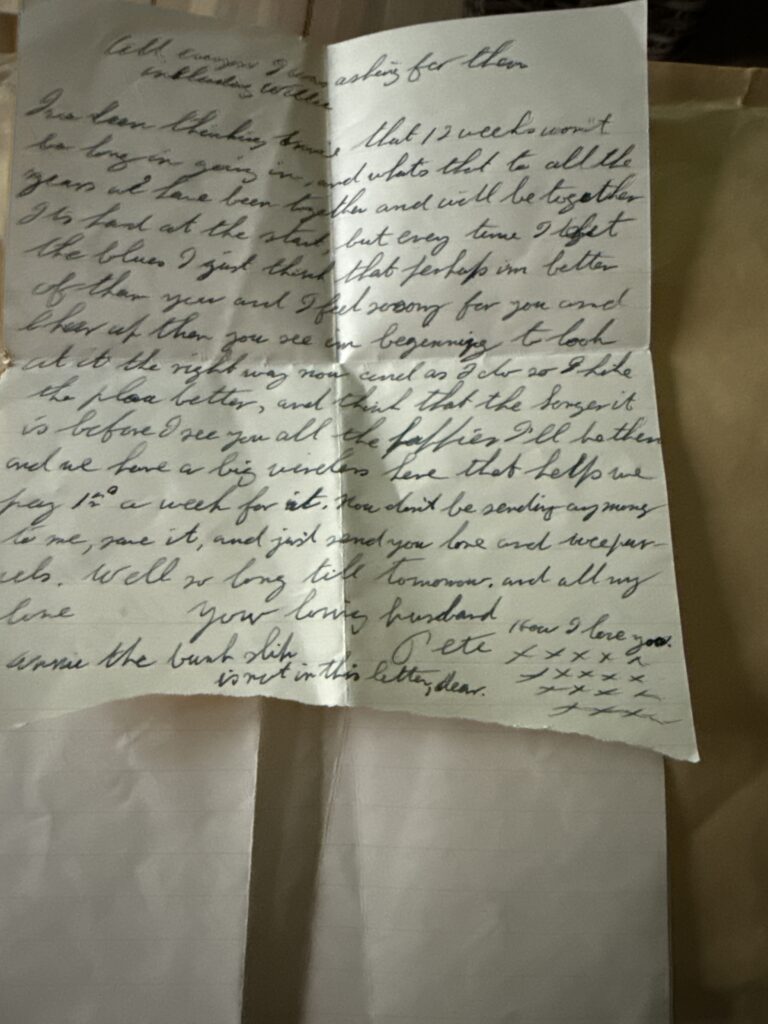 Tell everyone I was asking for them
including Willie
I've been thinking Annie that 12 weeks won't
be long in going in, and whats that to all the
years we have been together and will be together
Its hard at the start but every time I get
the blues I just think that perhaps im better
of than you and I feel sorry for you and
cheer up then you see im beginning to look
at it the right way now and as I do so I like
the place better, and think that the longer it
is before I see you all the happier I'll be then
and we have a big wireless here that helps we
pay a week for it. Now don't be sending any money
to me, save it, and just send you love and wee par-
cels. Well so long till tomorrow. and all my
love Your loving husband
Pete How I love you.
x x x x x
x x x x x
x x x x x
x x x x
Annie the bank slip
is not in this letter, dear.